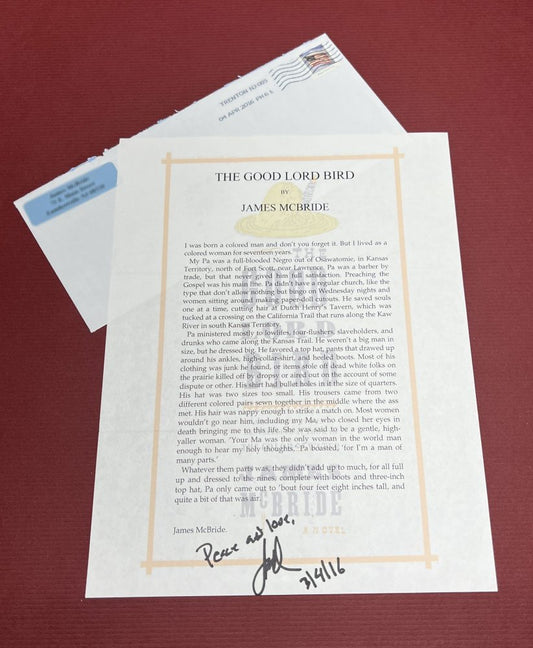 TRENTON NJ 085
04 APR 2016 PM 6 L
James McBride
THE GOOD LORD BIRD
BY
JAMES MCBRIDE
I was born a colored man and don't you forget it. But I lived as a
colored woman for seventeen years.
My Pa was a full-blooded Negro out of Osawatomie, in Kansas
Territory, north of Fort Scott, near Lawrence. Pa was a barber by
trade, but that never gived him full satisfaction. Preaching the
Gospel was his main line. Pa didn't have a regular church, like the
type that don't allow nothing but bingo on Wednesday nights and
women sitting around making paper-doll cutouts. He saved souls
one at a time, cutting hair at Dutch Henry's Tavern, which was
tucked at a crossing on the California Trail that runs along the Kaw
River in south Kansas Territory.
Pa ministered mostly to lowlifes, four-flushers, slaveholders, and
drunks who came along the Kansas Trail. He weren't a big man in
size, but he dressed big. He favored a top hat, pants that drawed up
around his ankles, high-collar shirt, and heeled boots. Most of his
clothing was junk he found, or items stole off dead white folks on
the prairie killed off by dropsy or aired out on the account of some
dispute or other. His shirt had bullet holes in it the size of quarters.
His hat was two sizes too small. His trousers came from two
different colored pairs sewn together in the middle where the ass
met. His hair was nappy enough to strike a match on. Most women
wouldn't go near him, including my Ma, who closed her eyes in
death bringing me to this life. She was said to be a gentle, high-
yaller woman. 'Your Ma was the only woman in the world man
enough to hear my holy thoughts,' Pa boasted, 'for I'm a man of
many parts.'
Whatever them parts was, they didn't add up to much, for all full
up and dressed to the nines, complete with boots and three-inch
top hat, Pa only came out to 'bout four feet eight inches tall, and
quite a bit of that was air.
James McBride.
THE
GOOD
LORD
BIRD
JAMES
McBRIDE
A NOVEL
Peace and love,
3/4/16